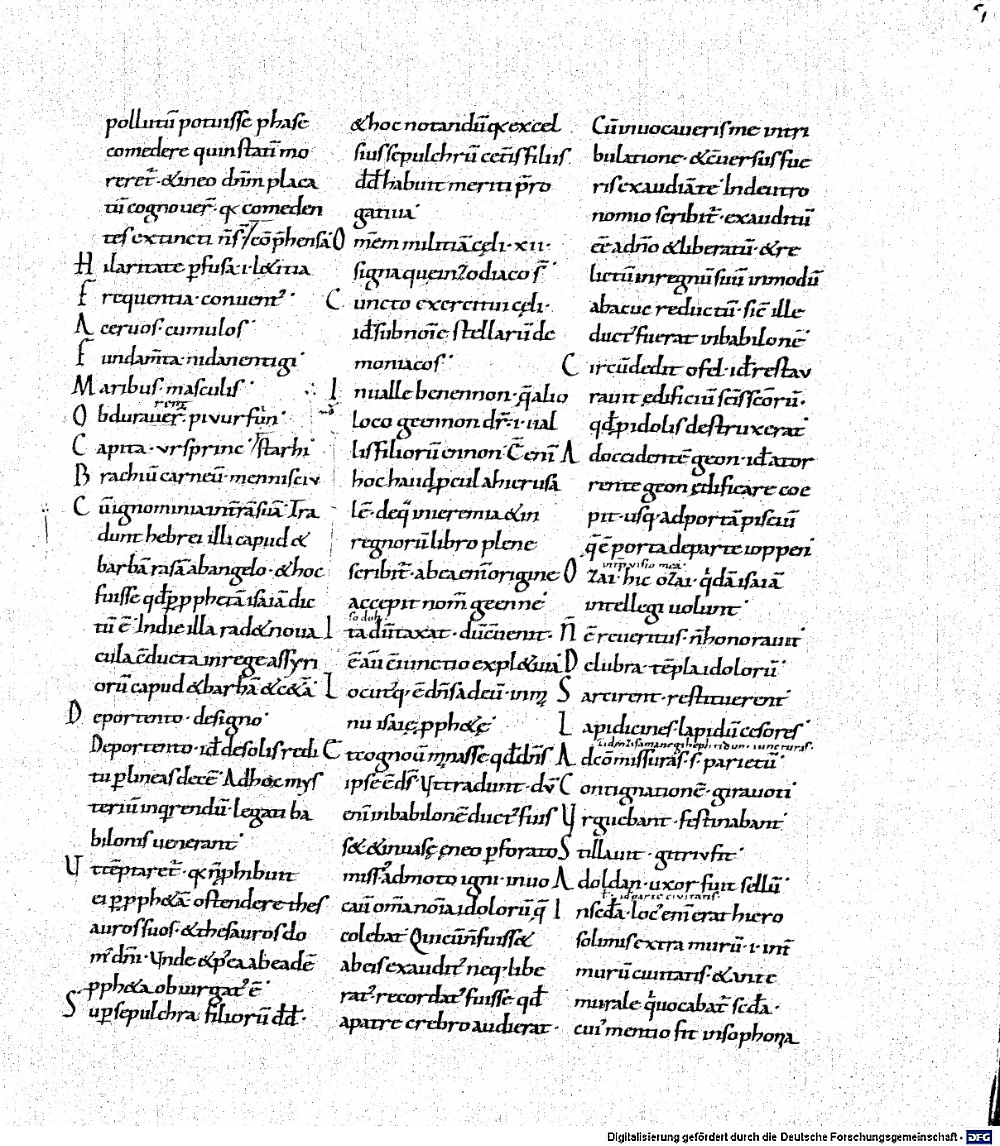 pollutū potuisse phase
comedere quin statī mo
reret᷑ · & in eo dn̄m placa
tū cognouer̄ · qꝛ comeden
tes extincti n̄ s̄ / cōp̄hensā
H ilaritate ꝑfusa · i · l&itia
F requentia · conuent᷑ ·
A ceruos · cumulos ·
F undam̄ta · nidanentigi ·
M aribus · masculis ·
O bdurauer̄ · piuurfun ·
C apita · ursprinc / starhi
B rachiū carneū · mennisciu
C ū ignominia in t̄rā suā · Tra
dunt hebrei illi capud &
barbā rasā ab angelo · & hoc
fuisse qd̄ ꝑ ꝓphetā isaiā dic
tū ē · In die illa rad& noua
cula c̄ducta in rege assyri
orū capud & barbā & c&ā ·
D e portento · de signo ·
De portento · id ÷ de solis redi
tu ꝑ lineas decē · Ad hoc mys
teriū inqrendū · legati ba
bilonis uenerant ·
U t tēptaret᷑ · qꝛ n̄ ꝓhibuit
ei ꝑ ꝓph&ā ostendere thes
auros suos · & thesauros do
m᷑ dn̄i · Unde & p᷑ea ab eadē
ꝓph&a obiurgat᷑ ē ·
S uꝑ sepulchra filiorū dd̄ ·
& hoc notandū qꝛ excel
sius sepulchrū cet̄is filiis
dd̄ habuit meriti p̄ro
gatiua ·
O m̄em militiā cęli · xii ·
signa que in zodiaco s̄ ·
C uncto exercitui cęli ·
id ÷ sub noīe stellarū de
moniacos ·
I n ualle benennon · q̄ alio
loco geennon dr̄ · i · ual
lis filiorū ennon · C̄ eni
hoc haud ꝓcul a hierusa
lē · de q̄ in ieremia & in
regnorū libro plene
scribit᷑ · ab ea eni origine
accepit nom̄ geenne ·
so doh
I ta dūtaxat · dū c̄uenit ·
ē au c̄iunctio expl&iua
L ocutiq · ē dn̄s ad eū · in m
nu isaię ꝓph&ę ·
E t cognoū m̄nasse qd̄ dn̄s
ipse ē ds̄ · Ut tradunt · dū
eni in babilonē duct᷑ fuis
s& & in uasę ęneo ꝑforato
miss᷑ admoto igni · inuo
cauī om̄a nōīa idolorū q̄
colebat · Qui cū n̄ fuiss&
ab eis exaudit᷑ neq · libe
rat᷑ · recordat᷑ fuisse qd̄
a patre crebro audierat ·
Cū inuocaueris me in tri
bulatione · & c̄uersus fue
ris exaudiā te · In deutro
nomio scribit᷑ · exauditū
eē a dn̄o & liberatū · & re
lictū in regnū suū in modū
abacuc reductū · sic ille
duct᷑ fuerat in babilonē ·
C ircūdedit ofel · id ÷ restau
rauit ędificiū scīs scōrū ·
qd̄ ꝑ idolis destruxerat ·
A d occidentē geon · id ÷ a tor
rente geon ędificare coe
pit · usq · ad portā pisciū
q̄ ē porta de parte ioppen ·
in ip᷑ visio mea ·
O zai · hic ozai · q᷑dā isaiā
intellegi uolunt ·
N̄ ē reueritus · n̄ honorauit ·
D elubra · tēpla idolorū ·
S arcirent · restituerent ·
L apidicines · lapidū cesores ·
A d cōmissuras · s · parietū ·
C ontignationē · girauoti ·
U rguebant · festinabant ·
S tillauit · gitriufit ·
A d oldan · uxor fuit sellū ·
id ÷ parte ciuitatis ·
I n sc̄da · Loc᷑ eni erat hiero
solimis extra murū · i · int̄
murū ciuitatis · & ante
murale q᷑ uocabat᷑ sc̄da ·
cui᷑ mentio fit in sophona
Digitalisierung gefördert durch die Deutsche Forschungsgemeinschaft - DFG